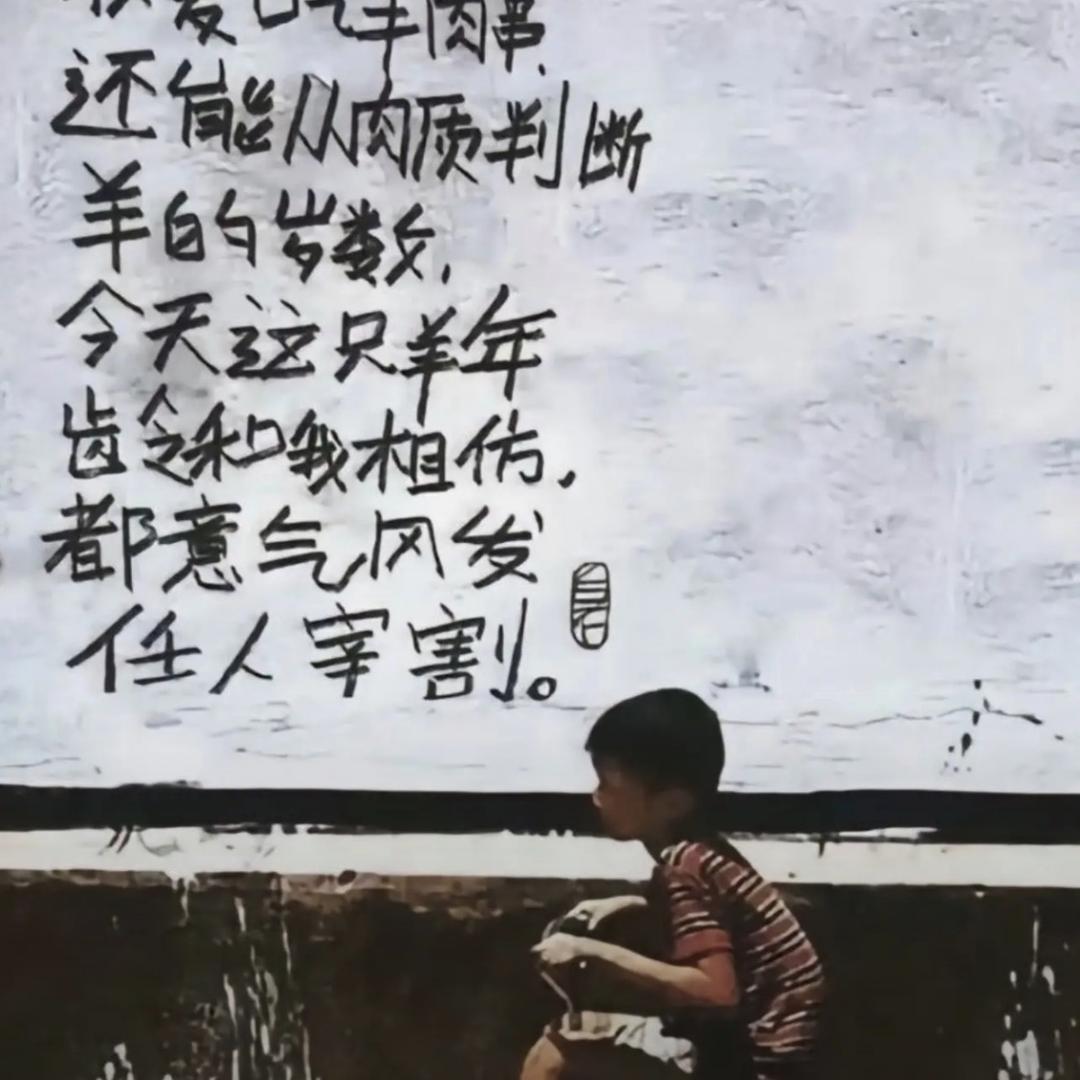 爱吃羊肉串,
还能从肉质判断
羊的岁数,
今天这只羊年
龄和我相仿,
都意气风发
任人宰割。